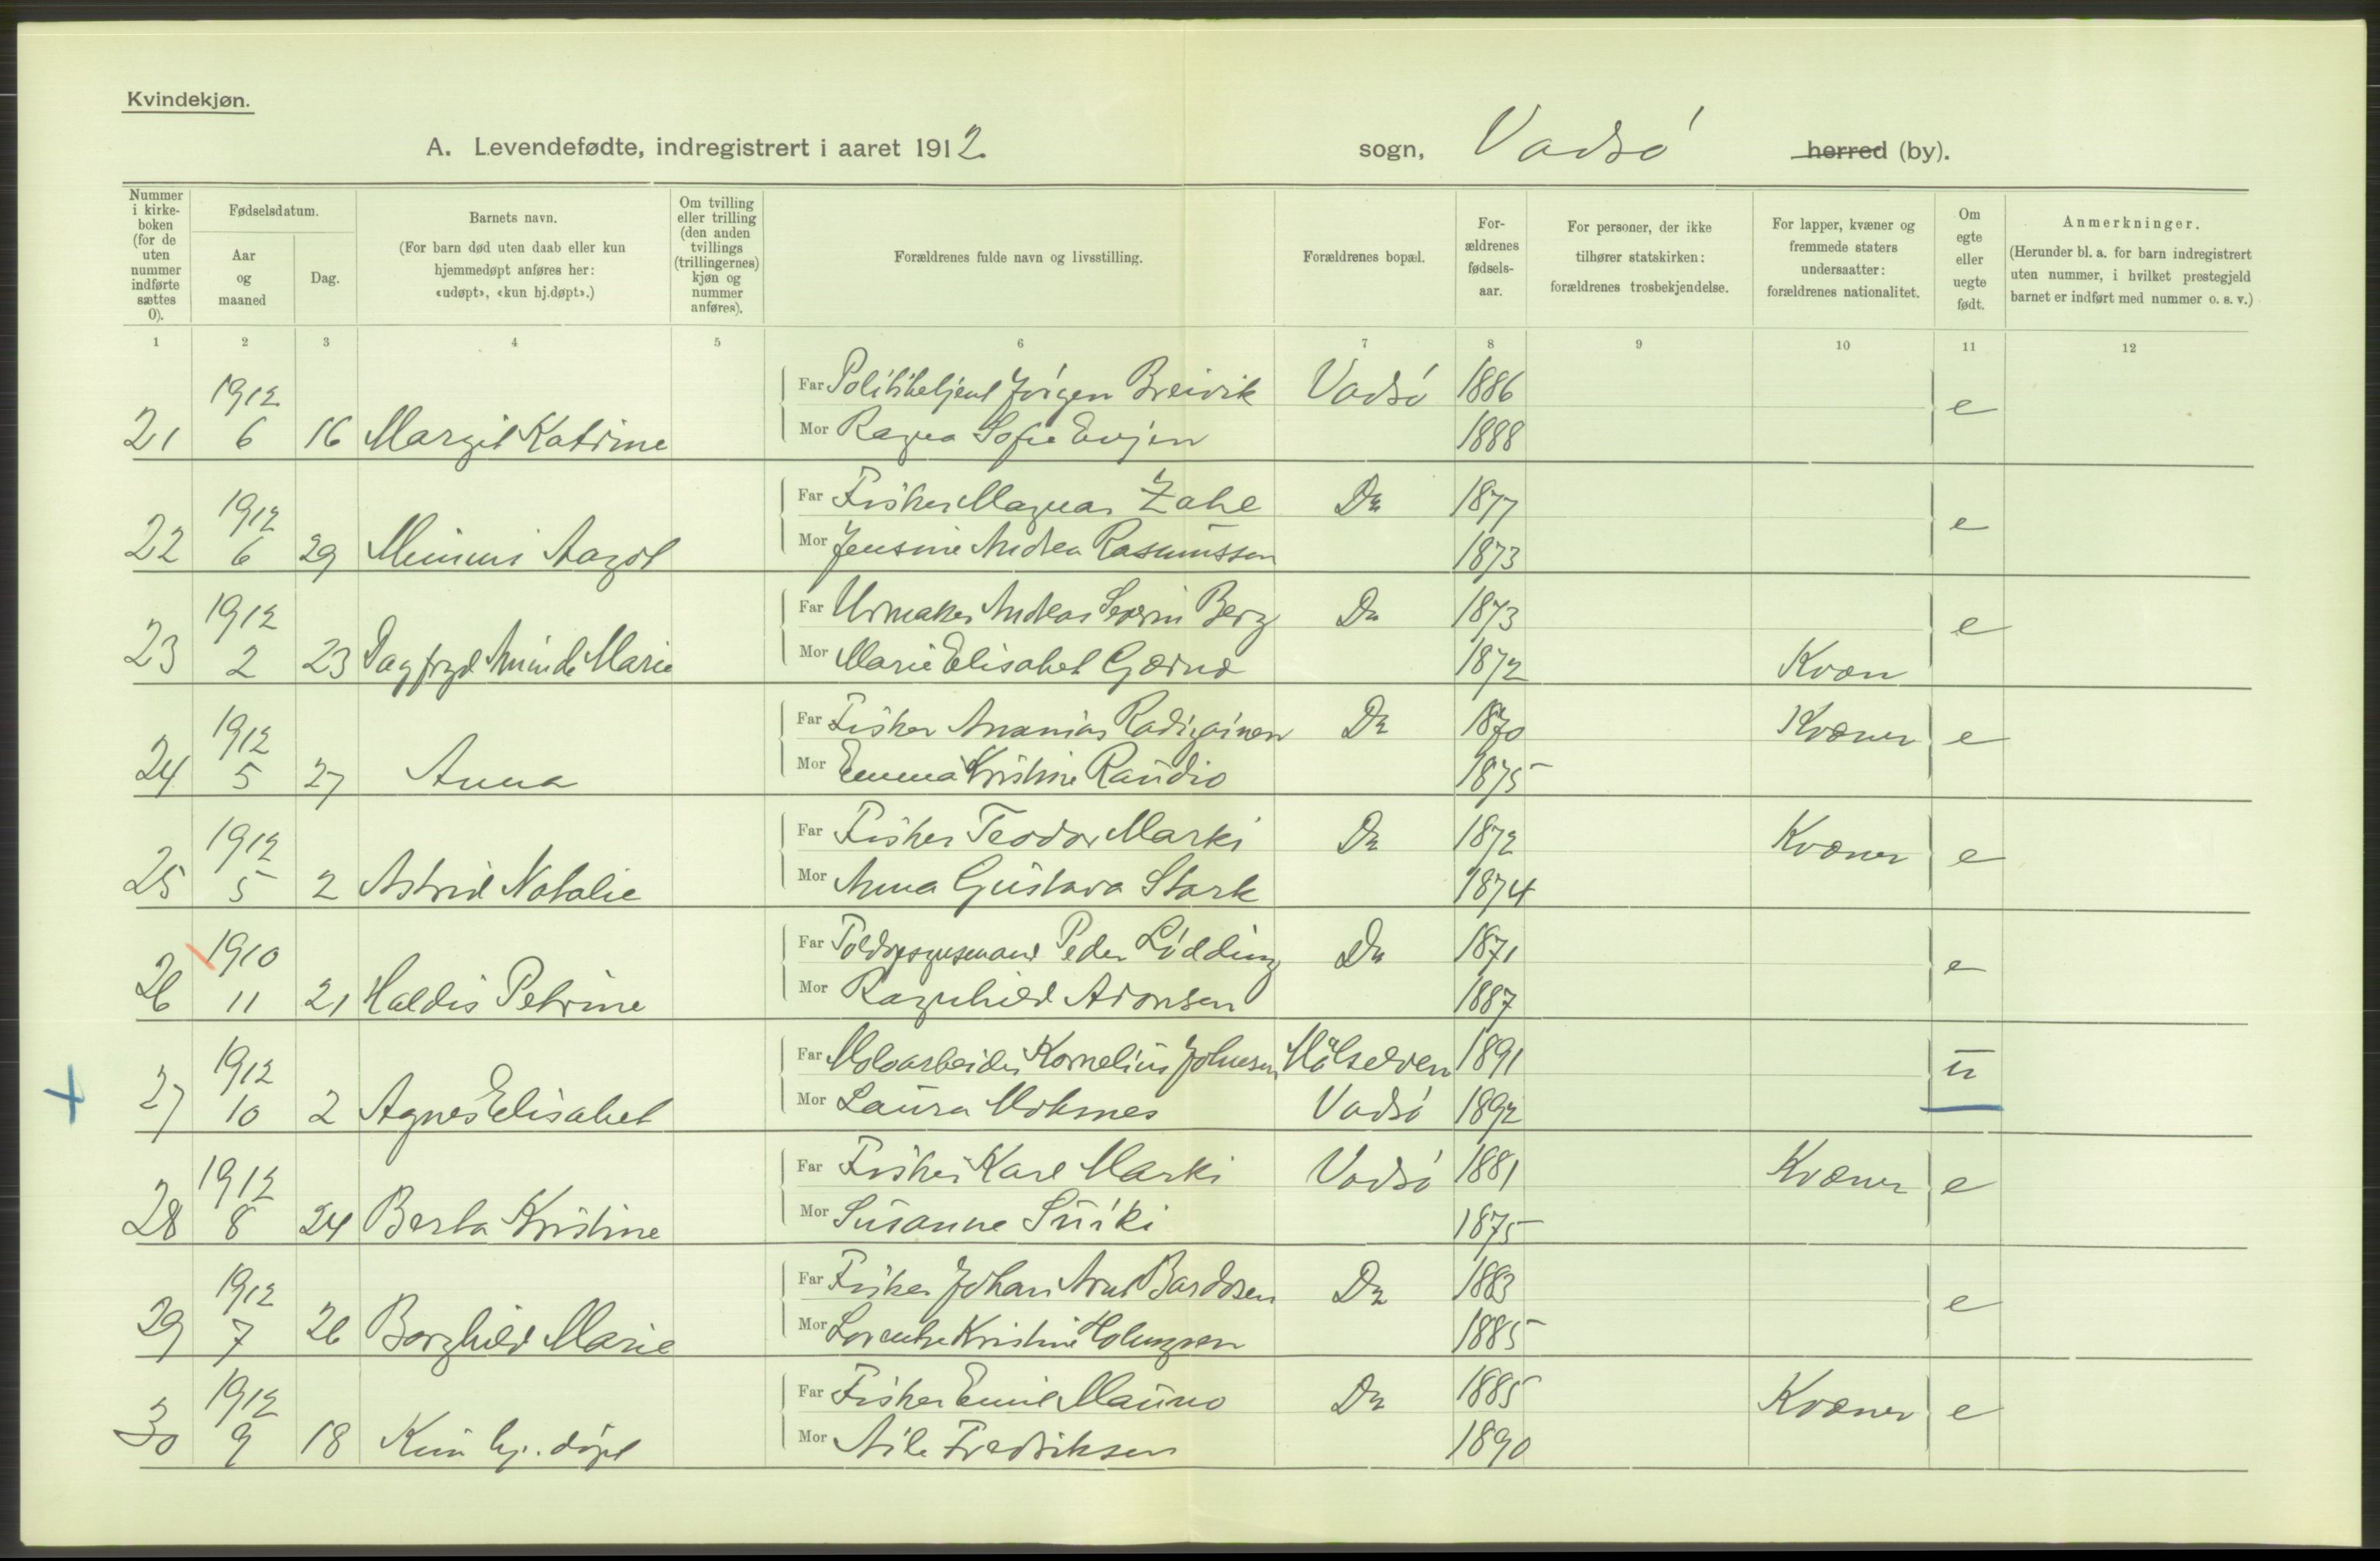 Kvindekjøn.
A. Levendefødte, indregistrert i aaret 1912. sogn, Vadsø herred (by).
Nummer i kirkeboken (for de uten nummer indførte sættes 0).
Fødselsdatum.
Aar og maaned
Dag.
Barnets navn.
(For barn død uten daab eller kun hjemmedøpt anføres her: «udøpt», «kun hj.døpt».)
Om tvilling eller trilling (den anden tvillings (trillingernes) kjøn og nummer anføres).
Forældrenes fulde navn og livsstilling.
Forældrenes bopæl.
For-ældrenes fødsels-aar.
For personer, der ikke tilhører statskirken: forældrenes trosbekjendelse.
For lapper, kvæner og fremmede staters undersaatter: forældrenes nationalitet.
Om egte eller uegte født.
Anmerkninger.
(Herunder bl. a. for barn indregistrert uten nummer, i hvilket prestegjeld barnet er indført med nummer o. s. v.)
1 2 3 4 5 6 7 8 9 10 11 12
1912 Far Politibetjent Jørgen Breivik Vadsø 1886 e
21 6 16 Margit Katrine Mor Ragna Sofie Evjen 1888
1912 Far Fisker Magnar Zahl Do 1877 e
22 6 29 Mimmi Aagot Mor Jensine Andrea Rasmussen 1873
1912 Far Urmaker Andreas Severin Berg Do 1873 e
23 2 23 Dagfryd Marie Mor Marie Elisabet 1872 Kvæn
1912 Far Fisker Ananias Do 1870 Kvæner e
24 5 27 Anna Mor Emma Kristine Raudio 1875
1912 Far Fisker Teodor Marki Do 1872 Kvæner e
25 5 2 Astrid Natalie Mor Anna Gustava Stark 1874
1910 Far Peder Lødding Do 1871 e
26 11 21 Haldis Petrine Mor Ragnhild Aronsen 1887
1912 Far Moloarbeider Kornelius Johnsen Målselven 1891 u
27 10 2 Agnes Elisabet Mor Laura Vadsø 1892
1912 Far Fisker Karl Marki Vadsø 1881 Kvæner e
28 8 24 Berta Kristine Mor Susanne Suiki 1875
1912 Far Fisker Johan Arnt Bardosen Do 1883 e
29 7 26 Borghild Marie Mor Lorentze Kristine Holmgren 1885
1912 Far Fisker Emil Mauno Do 1885 Kvæner e
30 9 18 Kun hj. døpt Mor Fredriksen 1890